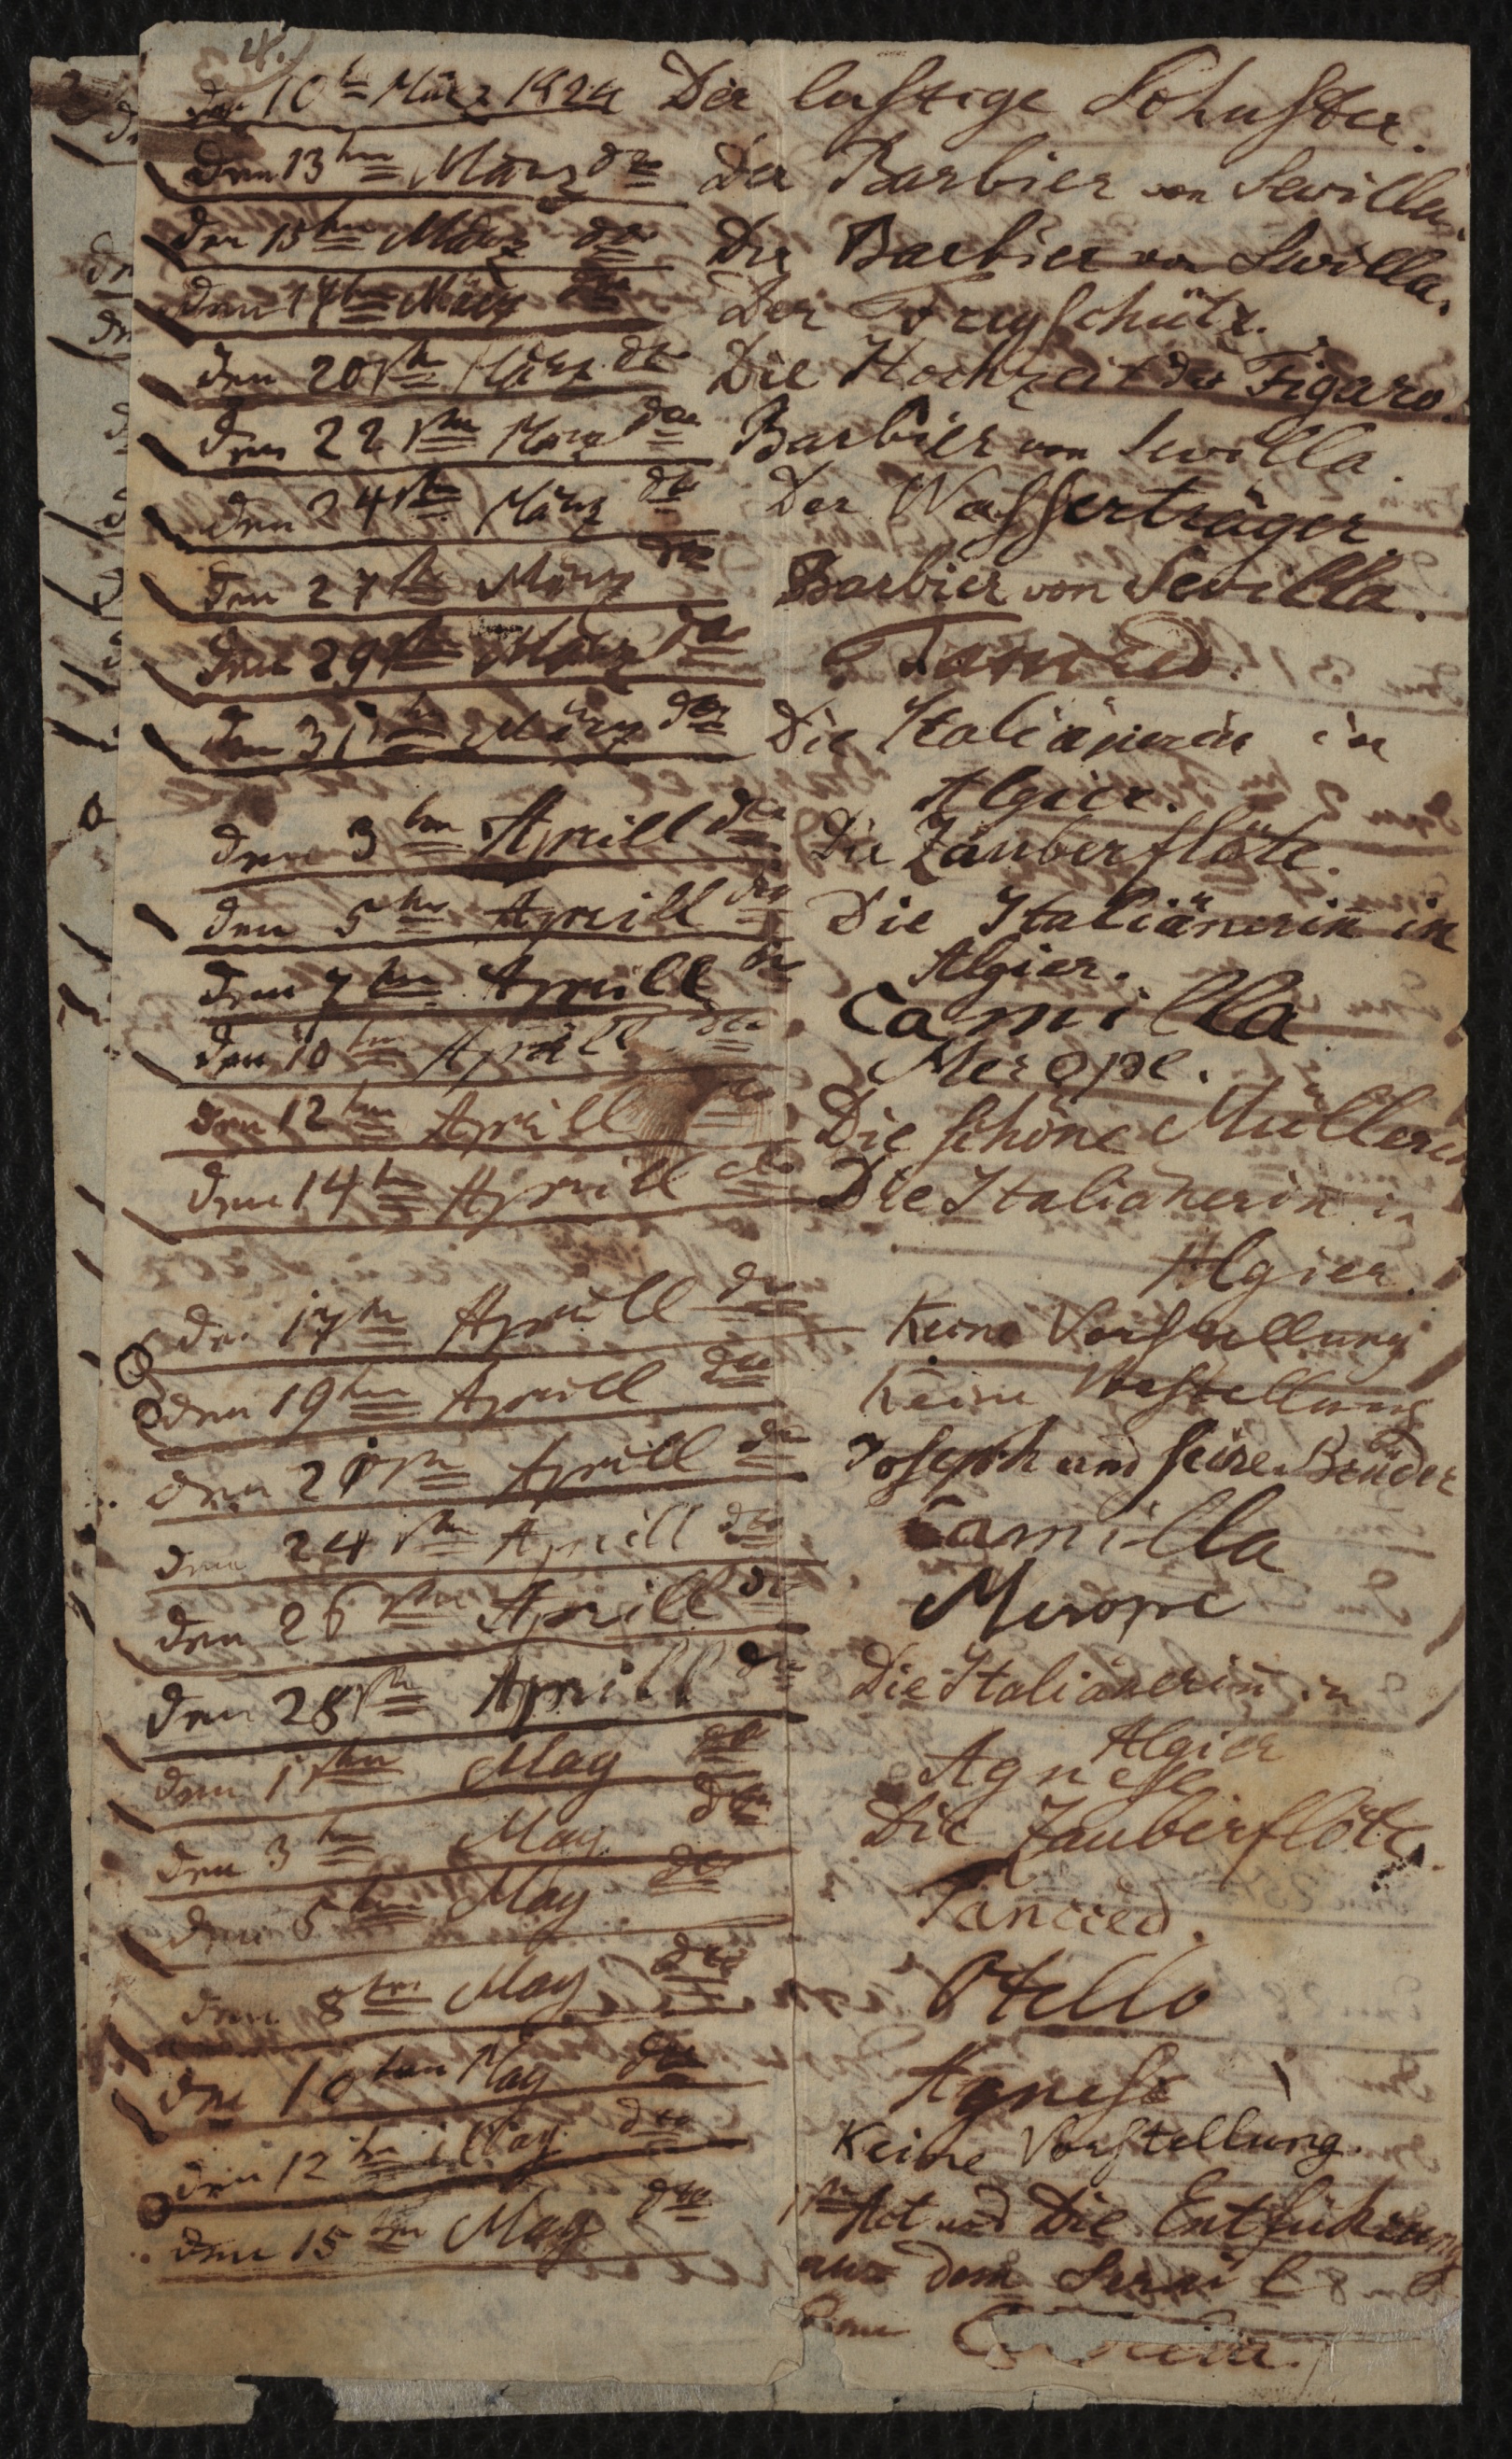 4.
den 10t März 1824 Der lustige Schuster.
den 13ten März dto Der Barbier von Sevilla.
den 15ten März dto Der Barbier von Sevilla.
den 17ten März dto Der Freyschütz.
den 20sten März dto Die Hochzeit des Figaro.
den 22sten März dto Barbier von Sevilla
den 24sten März dto Der Wasserträger.
den 27sten März dto Barbier von Sevilla.
den 29sten März dto Tancred.
den 31ten März dto Die Italiänerin in
Algier.
den 3ten Aprill dto Die Zauberflöte.
den 5ten Aprill dto Die Italiänerin in
Algier.
den 7ten Aprill dto Camilla
den 10ten Aprill dto Merope.
den 12ten Aprill dto Die schöne Müllerin
den 14t Aprill dto Die Italiänerin in
Algier.
den 17ten Aprill dto Keine Vorstellung
den 19ten Aprill dto Keine Vorstellung
den 21sten Aprill dto Joseph und seine Brüder
den 24sten Aprill dto Camilla
den 26sten Aprill dto Merope
den 28sten Aprill dto Die Italiänerin in
Algier
den 1sten May dto Agnese
den 3ten May dto Die Zauberflöte.
den 5ten May dto Tancred.
den 8ten May dto Otello
den 10ten May dto Agnese
den 12ten May dto Keine Vorstellung.
den 15ten May dto 1ten Act und Die Entführung
aus dem Serail